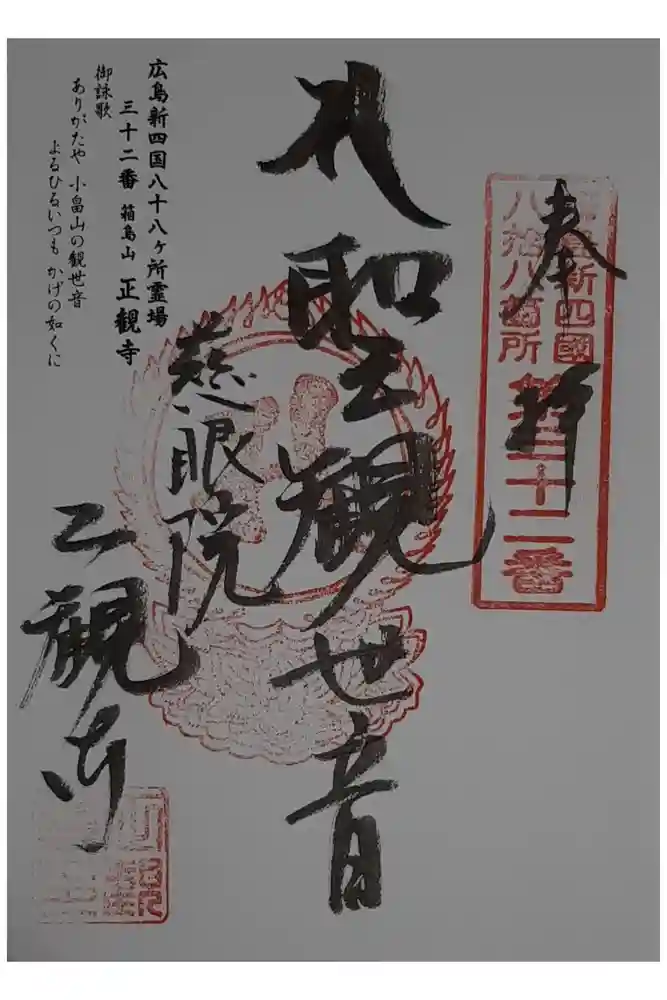 奉拝
広島新四國
八拾八箇所
第三十二番
聖観世音
慈眼院
正観寺
広島新四国八十八ヶ所霊場
三十二番 箱島山 正観寺
御詠歌
ありがたや 小畠山の観世音
よるひるいつも かげの如くに